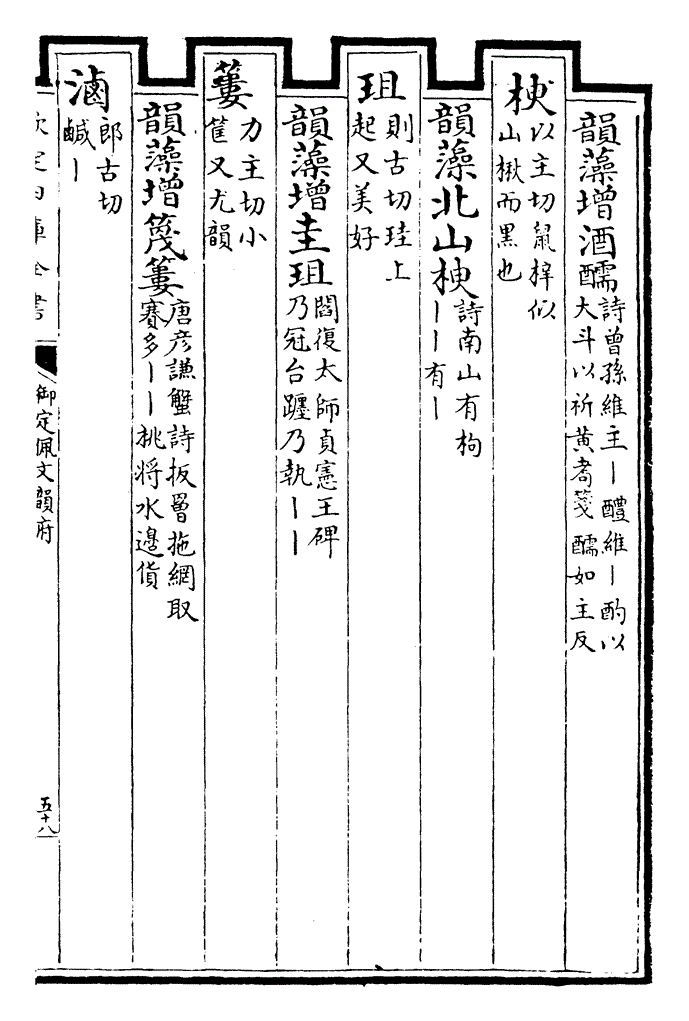 韻藻增酒醹詩曾孫維主丨醴維丨酌以
大斗以祈黃耈箋醹如主反
楰以主切鼠梓似
山楸而黑也
韻藻北山楰詩南山有枸
丨丨有丨
珇則古切珪上
起又美好
韻藻增圭珇閻復太師貞憲王碑
乃冠台躔乃執丨丨
簍力主切小
筐又尤韻
韻藻增篾簍唐彥謙蟹詩扳罾拖網取
賽多丨丨挑将水邉貨
滷郎古切
鹹丨
欽定四庫全書
御定佩文韻府
五十八